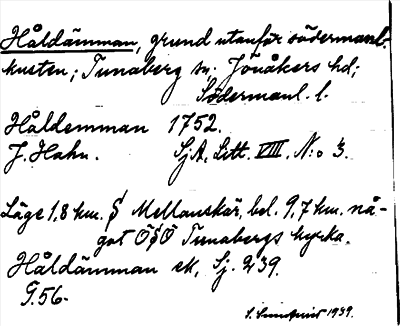 Håldämman, grund utanför södermanl.
kusten; Tunaberg sn, Jönåkers hd;
Södermanl. l.
Håldemman 1752.
J. Hahn. SjA, Litt. VIII. N:o 3.
Läge 1,8 km. S Mellanskär, bel. 9,7 km. nå-
got ÖSÖ Tunabergs kyrka.
Håldämman ek, Sj. 239.
S. Sundqvist 1939.